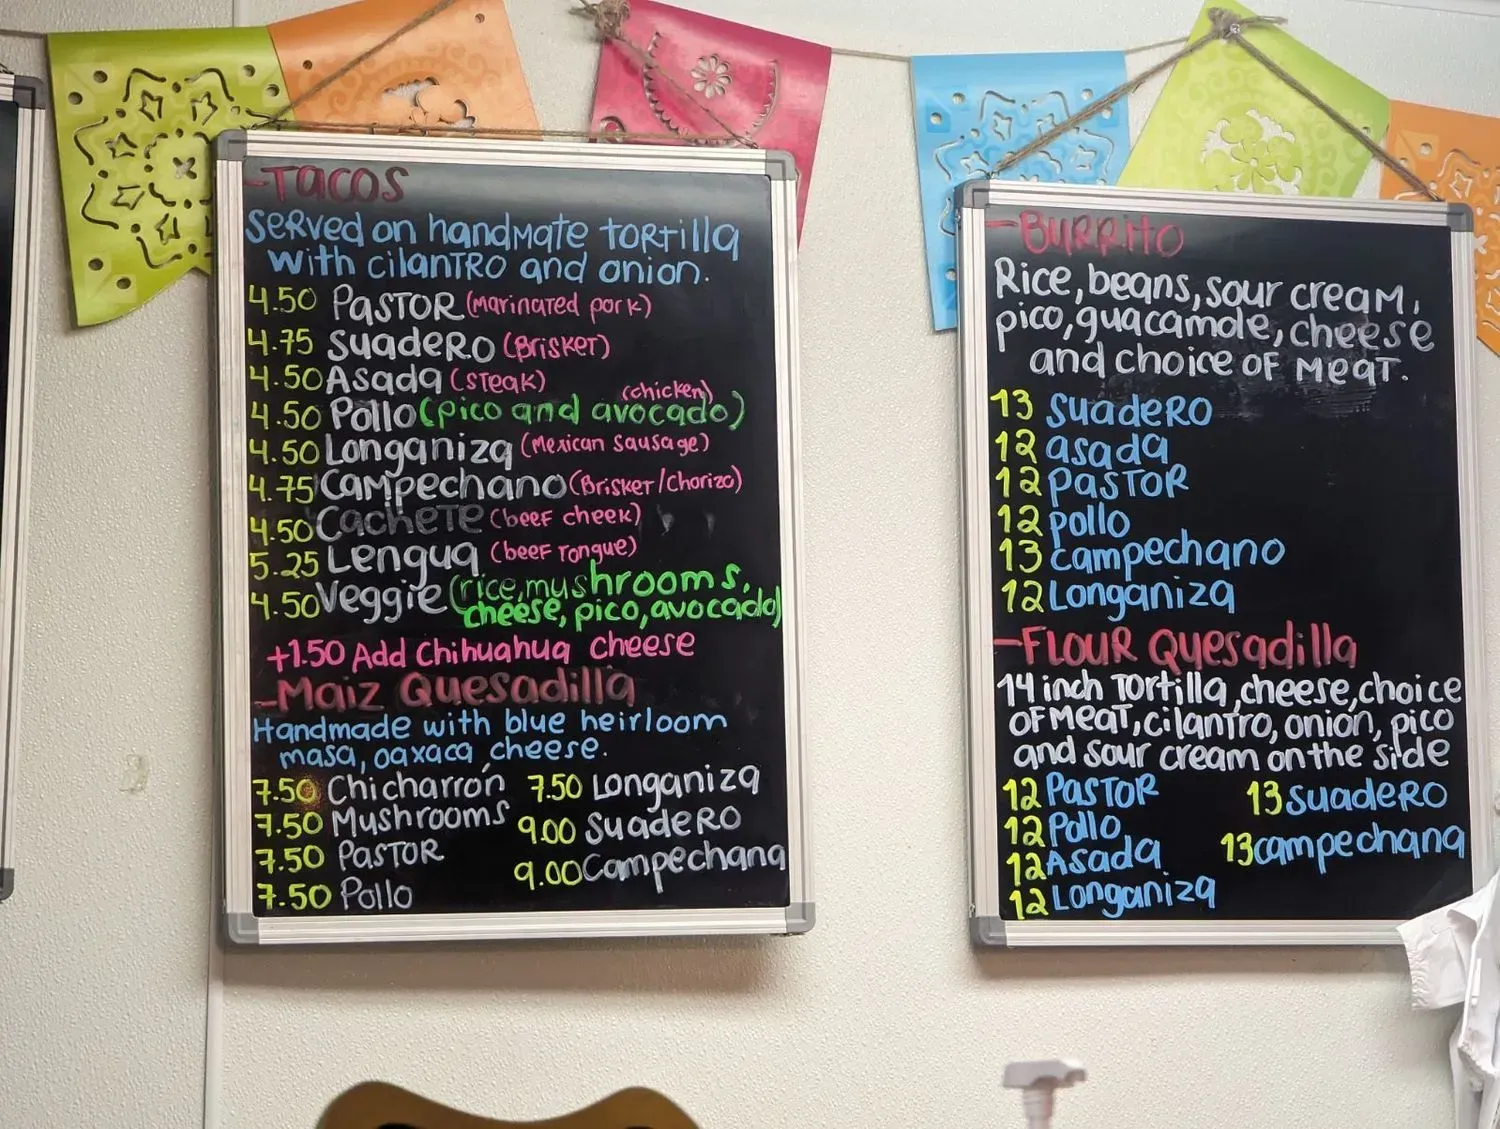 -TACOS
Served on handmate tortilla
with cilantro and onion.
4.50 Pastor (Marinated pork)
4.75 Suadero (Brisket)
4.50 Asada (steak)
(chicken)
4.50 Pollo (pico and avocado)
4.50 Longaniza (Mexican Sausage)
4.75 Campechano (Brisket/Chorizo)
4.50 Cachete (beef cheek)
5.25 Lengua (beef Tongue)
4.50 Veggie (rice, mushrooms,
cheese, pico, avocado)
+1.50 Add Chihuahua cheese
-Maiz Quesadilla
Handmade with blue heirloom
masa, oaxaca, cheese.
7.50 Chicharrón 7.50 Longaniza
7.50 Mushrooms 9.00 Suadero
7.50 Pastor 9.00 Campechana
7.50 Pollo
-Burrito
Rice, beans, sour cream,
pico, guacamole, cheese
and choice of meat.
13 Suadero
12 asada
12 Pastor
12 pollo
13 campechano
12 Longaniza
-Flour Quesadilla
14 inch Tortilla, cheese, choice
of meat, cilantro, onion, pico
and sour cream on the side
12 Pastor 13 Suadero
12 Pollo 13 campechana
12 Asada
12 Longaniza